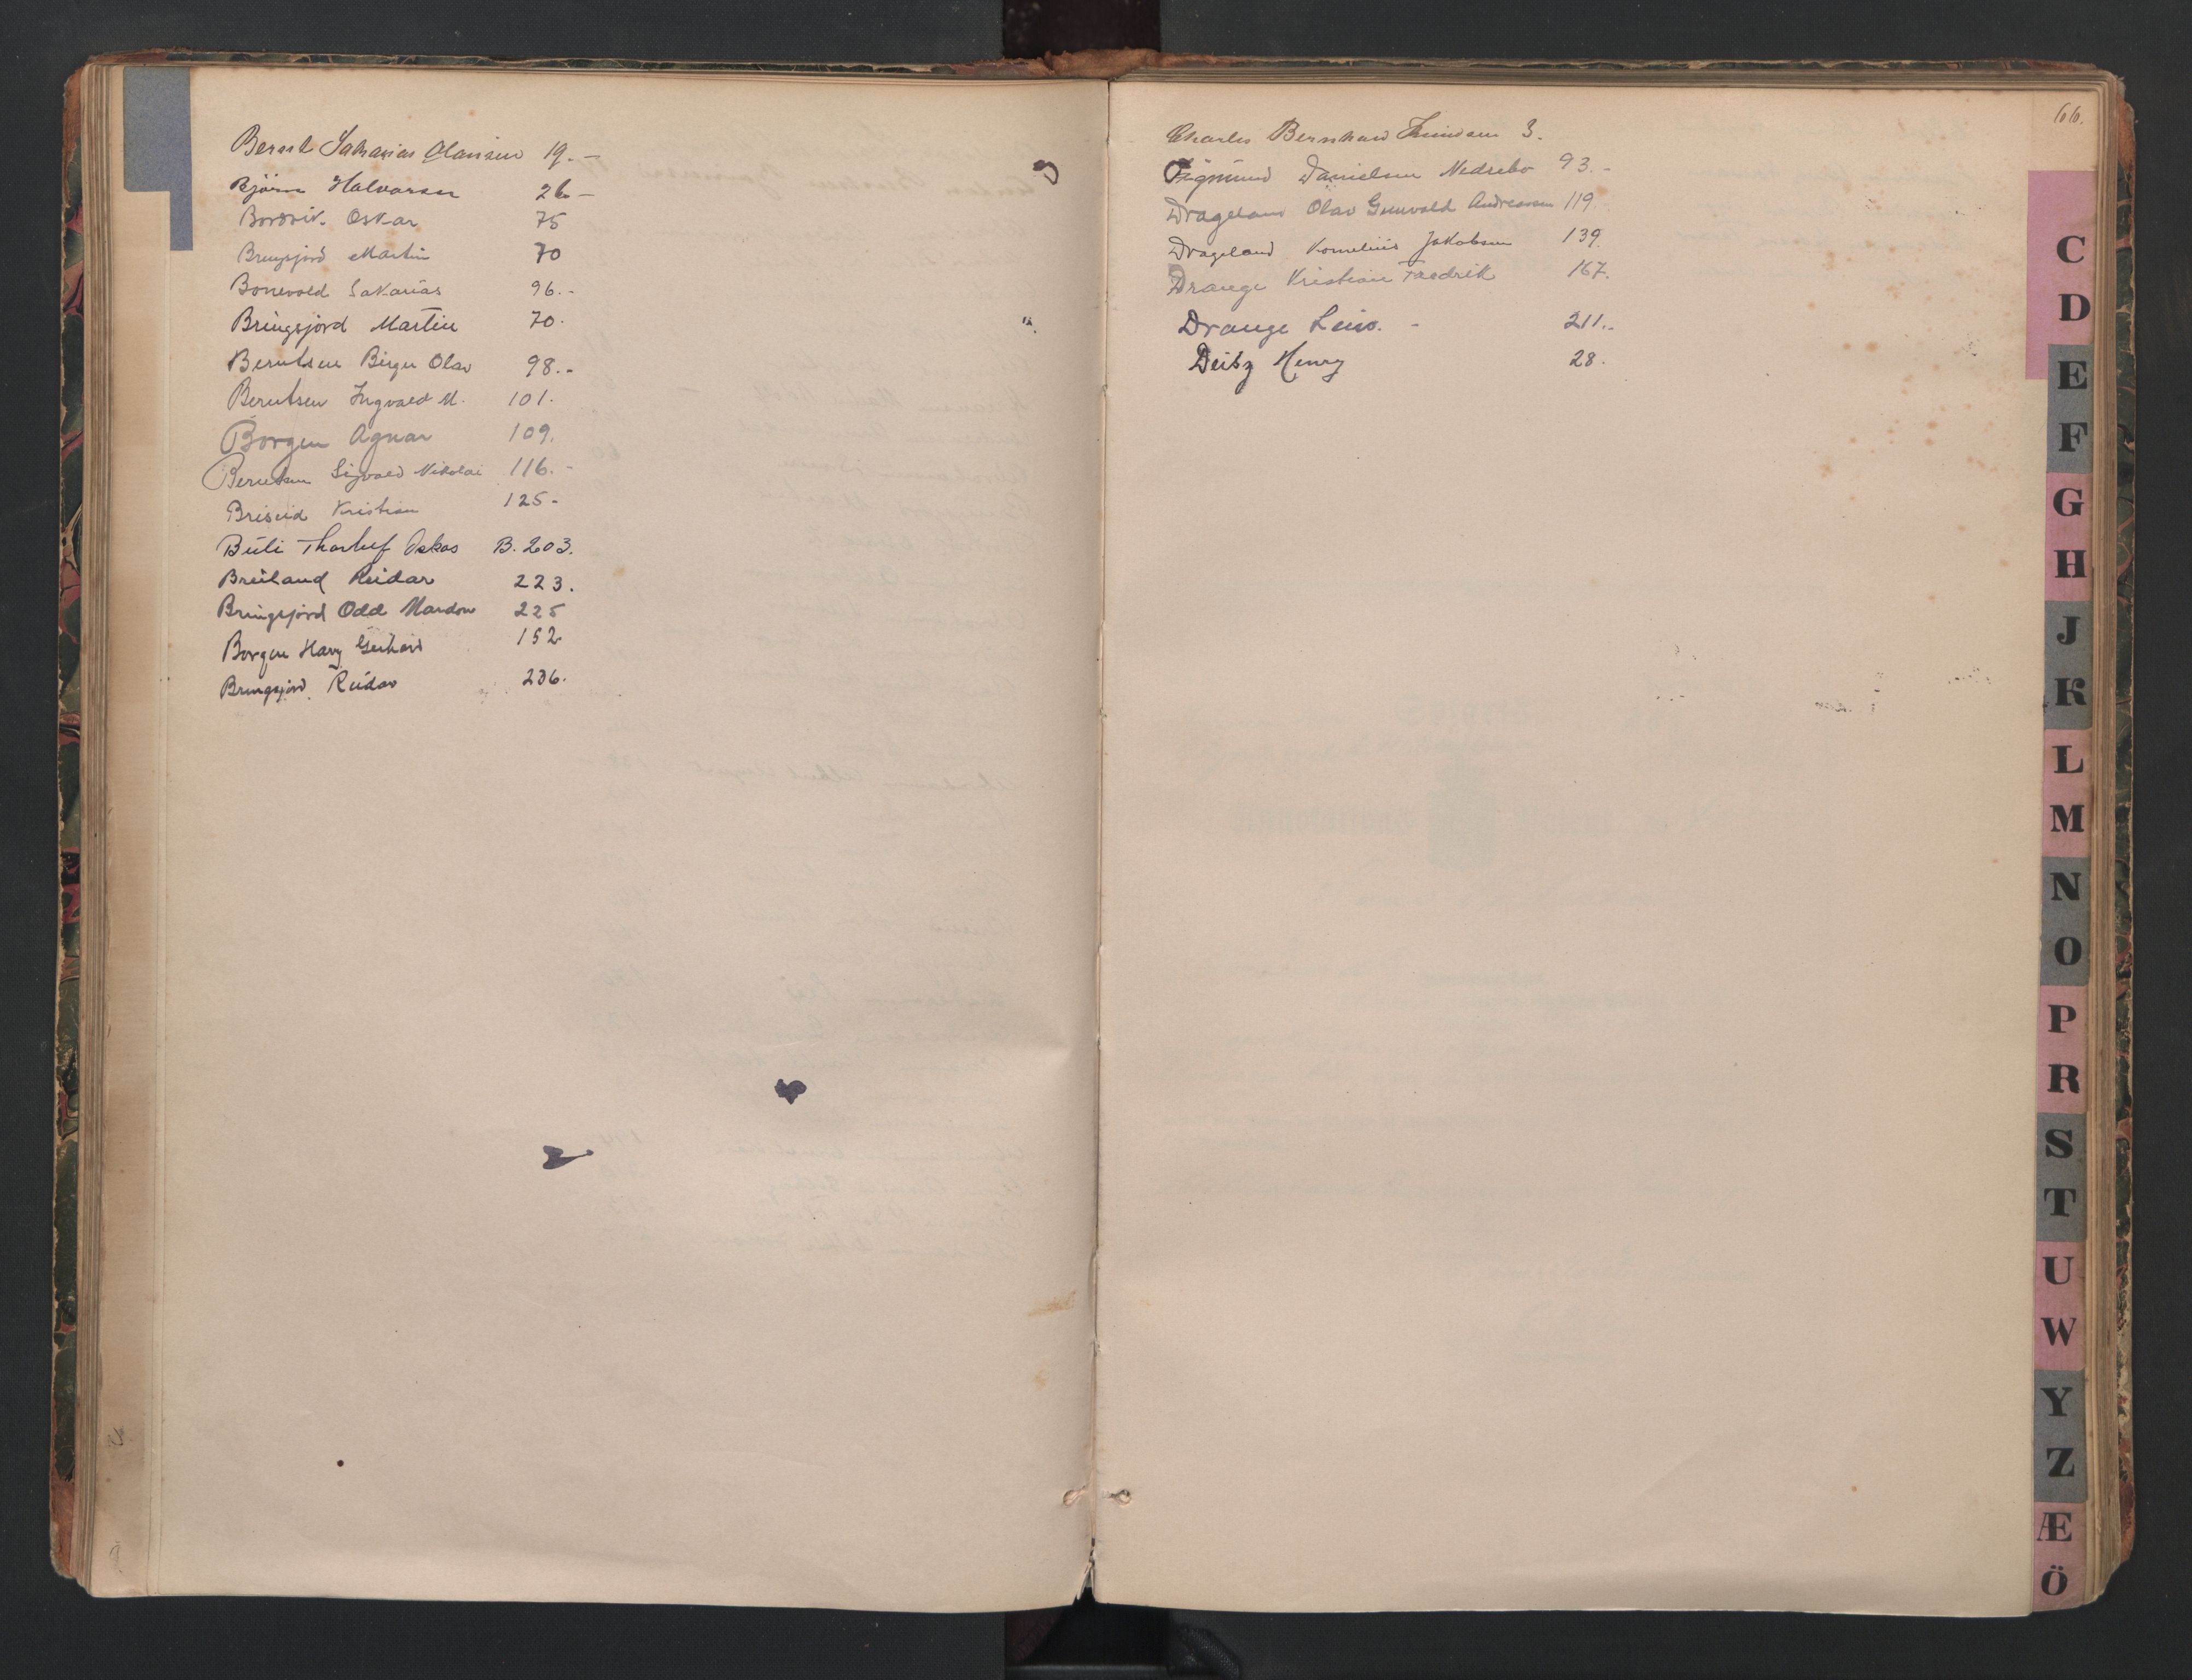 Bernt Sakarias Olausen 19.–
Björn Halvorsen 26–
Bordvik Oskar 75
Bringsjord Martin 70
Bonevold Sakarias 96.-
Bringsjord Martin 70.
Berntsen Birger Olav 98.-
Berntsen Ingvald M. 101.
Borgen Agnar 109.
Berntsen Sigvald Nikolai 116.-
Briseid Kristian 125-
Buli Thorleif Oskar B. 203.
Breiland Reidar 223.
Bringsjord Odd Mardon 225
Borgen Harry Gerhard 152
Bringsjord Reidar 236.
66.
Charles Bernhard 3.
Sigmund Danielsen Nedrebo 93.-
Drageland Olav Gunvald Andreassen 119
Drageland Kornelius Jakobsen 139.
Drange Kristian Fredrik 167.
Drange Leiv. - 211.-
Deitz Henry 28.
C
D
E
F
G
H
J
K
L
M
N
O
P
R
S
T
U
W
Y
Z
Æ
Ö